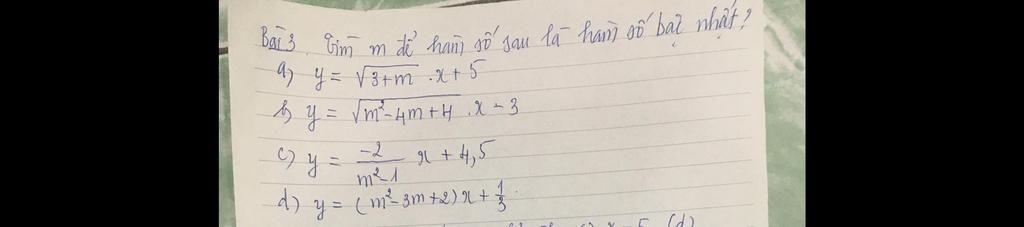 Bài 3. Tìm m để hàm số sau là hàm số bậc nhất?
a) y = √(3+m) . x + 5
b) y = √(m²-4m+4) . x - 3
c) y = -2/(m²-1) x + 4,5
d) y = (m²-3m+2)x + 1/3